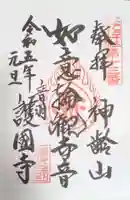 奉拝
神齢山
如意輪観世音
護國寺
令和五年
元旦